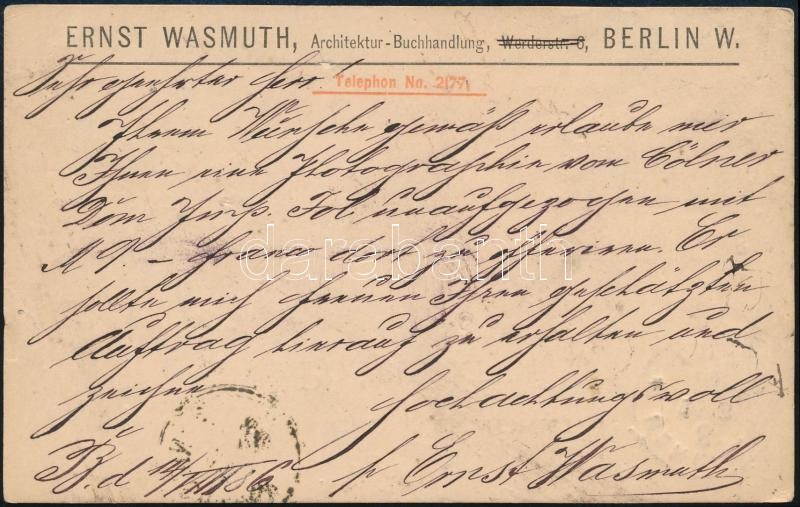 ERNST WASMUTH, Architektur-Buchhandlung, Werderstr. 6, BERLIN W.
Telephon No. 2177.
Sehr geehrter Herr!
Ihrem Wunsche gemäß erlaube mir
Ihnen eine Photographie vom Cölner
Dom Imp. Fol. unaufgezogen mit
M 9.– franco dort zu offeriren. Es
sollte mich freuen Ihren geschätzten
Auftrag hierauf zu erhalten und
zeichne
Hochachtungsvoll
B. d 86 p Ernst Wasmuth
darabanth